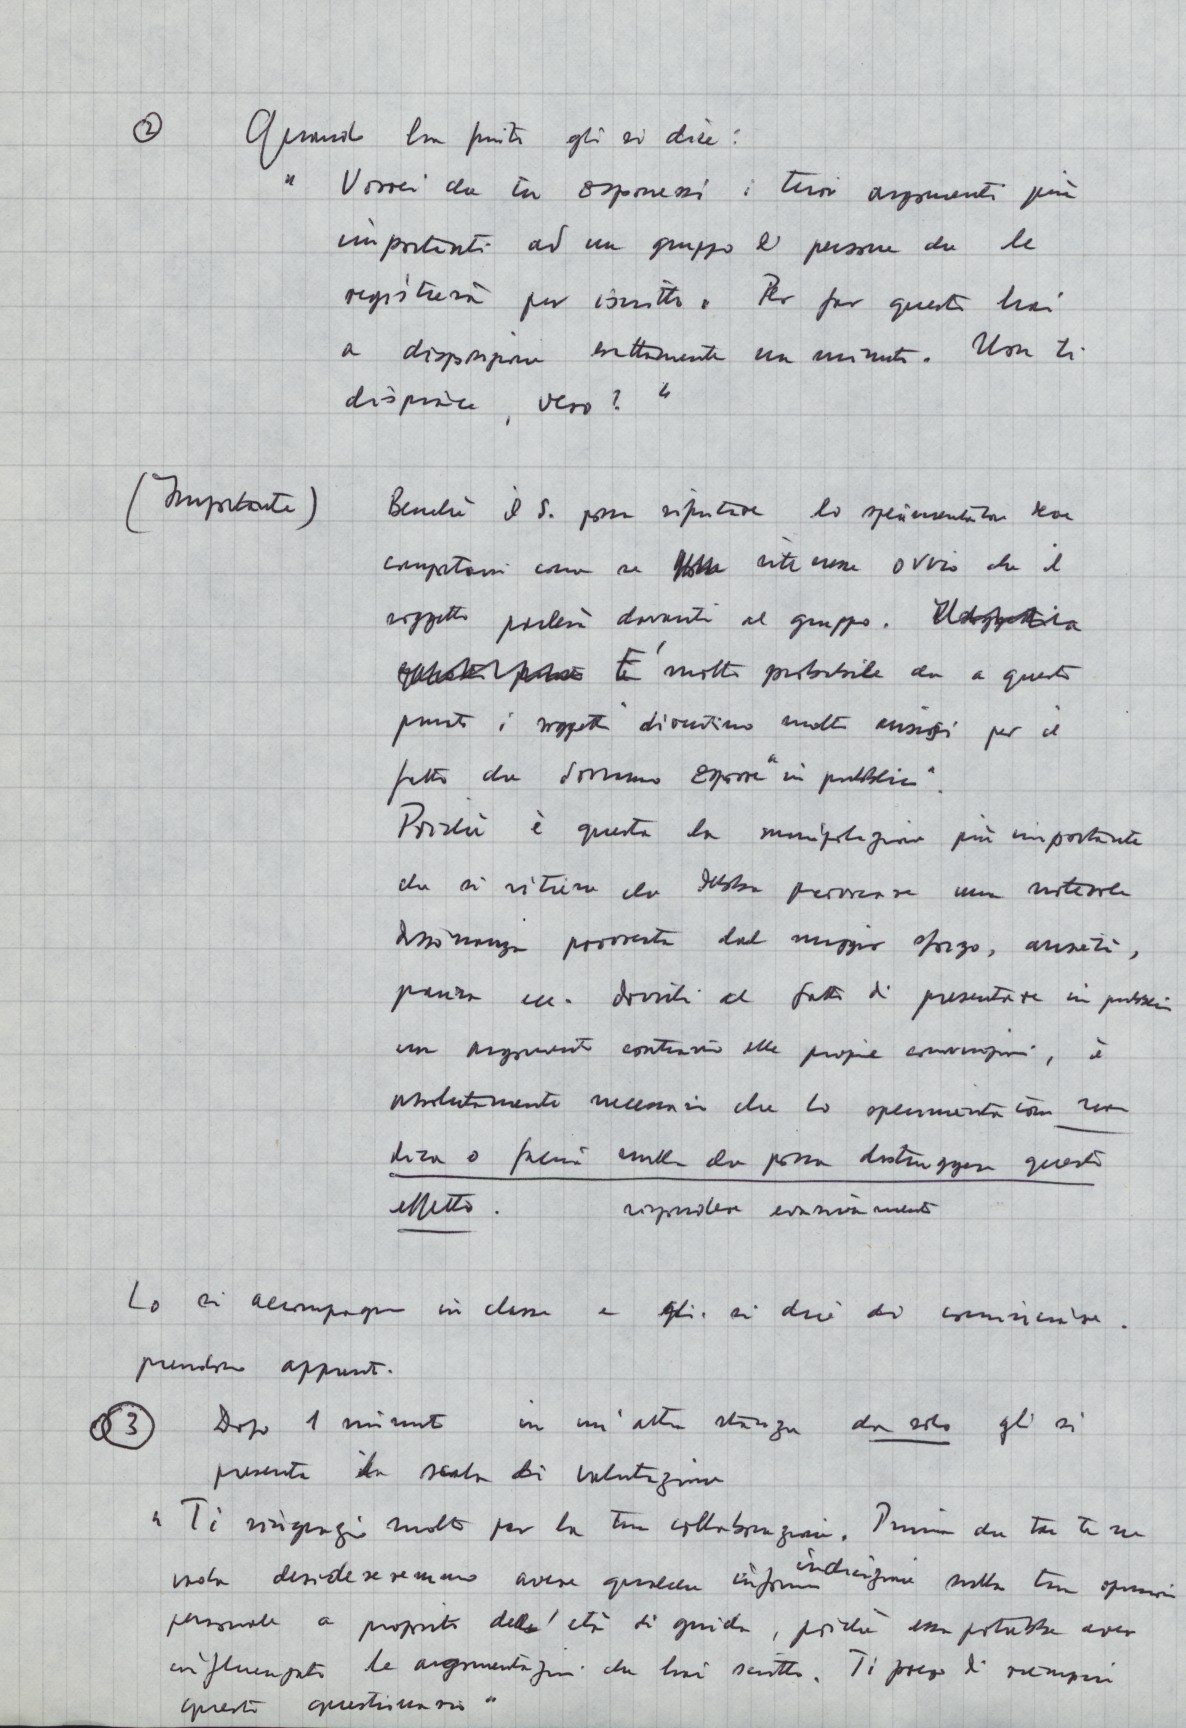 ② Quando ha finito gli si dice:
" Vorrei che tu esponessi i tuoi argomenti più
importanti ad un gruppo di persone che le
registrerà per iscritto. Per far questo hai
a disposizione esattamente un minuto. Non ti
dispiace, vero? "
(Importante) Benché il S. possa rifiutare lo sperimentatore deve
comportarsi come se ritenesse ovvio che il
soggetto parlerà davanti al gruppo.
E' molto probabile che a questo
punto i soggetti diventino molto ansiosi per il
fatto che dovranno esporre "in pubblico".
Poiché è questa la manipolazione più importante
che si ritiene che debba provocare una notevole
dissonanza provocata dal maggior sforzo, ansietà,
paura ecc. dovuti al fatto di presentare in pubblico
un argomento contrario alle proprie convinzioni, è
assolutamente necessario che lo sperimentatore non
dica o faccia nulla che possa distruggere questo
effetto. rispondere evasivamente
Lo si accompagna in classe e gli si dice di cominciare.
prendono appunti.
③ Dopo 1 minuto in un'altra stanza da solo gli si
presenta la scala di valutazione
" Ti ringrazio molto per la tua collaborazione. Prima che tu te ne
vada desidereremmo avere qualche indicazione sulla tua opinione
personale a proposito dell'età di guida, poiché essa potrebbe aver
influenzato le argomentazioni che hai scritto. Ti prego di riempire
questo questionario "